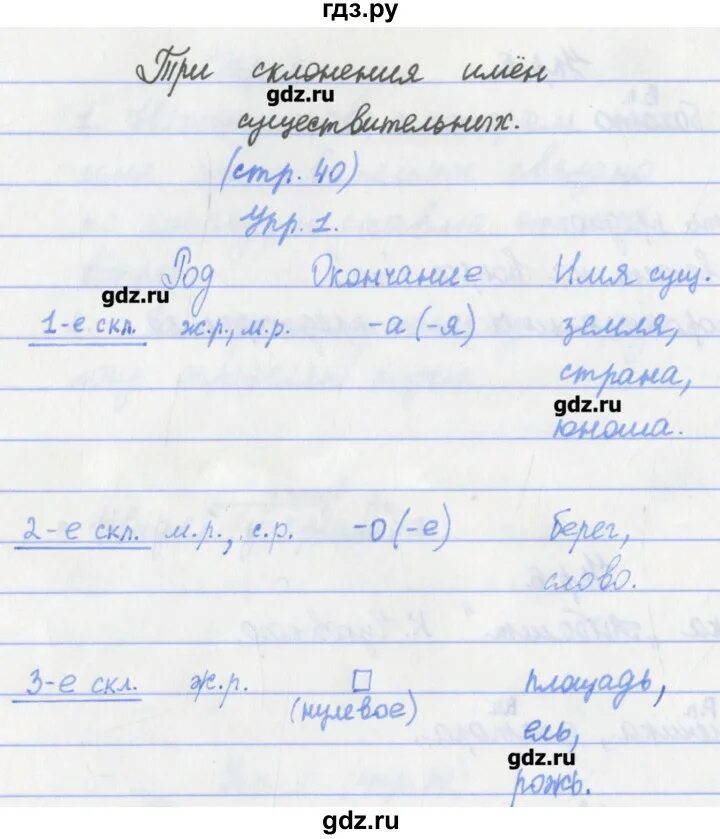 гдз.ру
Три склонения имён
gdz.ru
существительных.
(стр. 40)
Упр. 1.
Род Окончание Имя сущ.
gdz.ru
1-е скл. ж.р., м.р. -а (-я) земля,
страна,
gdz.ru
юноша.
2-е скл. м.р., с.р. -о (-е) берег,
слово.
3-е скл. ж.р. □ площадь,
(нулевое)
ель,
gdz.ru
рожь.
gdz.ru